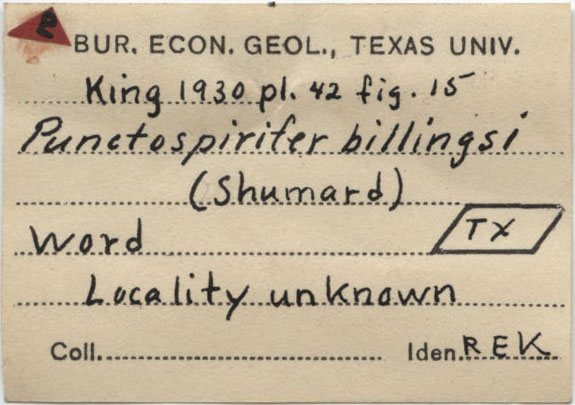 e
BUR. ECON. GEOL., TEXAS UNIV.
King 1930 pl. 42 fig. 15
Punctospirifer billingsi
(Shumard)
Word
TX
Locality unknown
Coll. Iden. REK